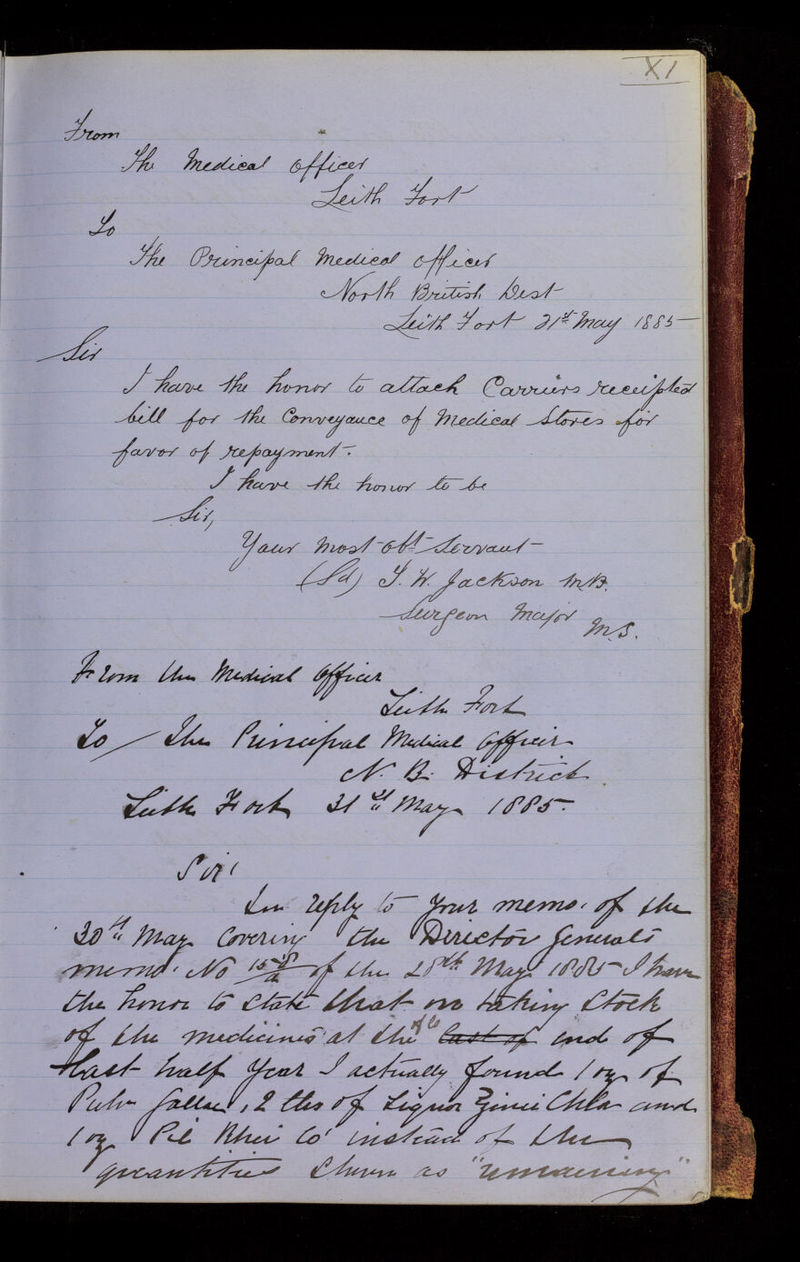 XI
From
The Medical Officer
Leith Fort
To
The Principal Medical Officer
North British Dist
Leith Fort 31st May 1885
Sir
I have the honor to attach Carriers receipted
bill for the Conveyance of Medical Stores for
favor of repayment.
I have the honor to be
Sir,
Your most obt Servant
(Sd) T. W. Jackson M.B.
Surgeon Major M.S.
From the Medical Officer
Leith Fort
To / The Principal Medical Officer
N. B. District
Leith Fort 31st May 1885.
Sir
In reply to your memo. of the
30th May covering the Director Generals
memo. No of the 28th May 1885 I have
the honor to state that on taking stock
of the medicines &c at the last of end of
last half year I actually found 1 oz of
Pulv Gallae, 2 lbs of Liquor Zinci Chlor and
1 oz Pil Rhei Co instead of the
quantities shewn as "remaining"